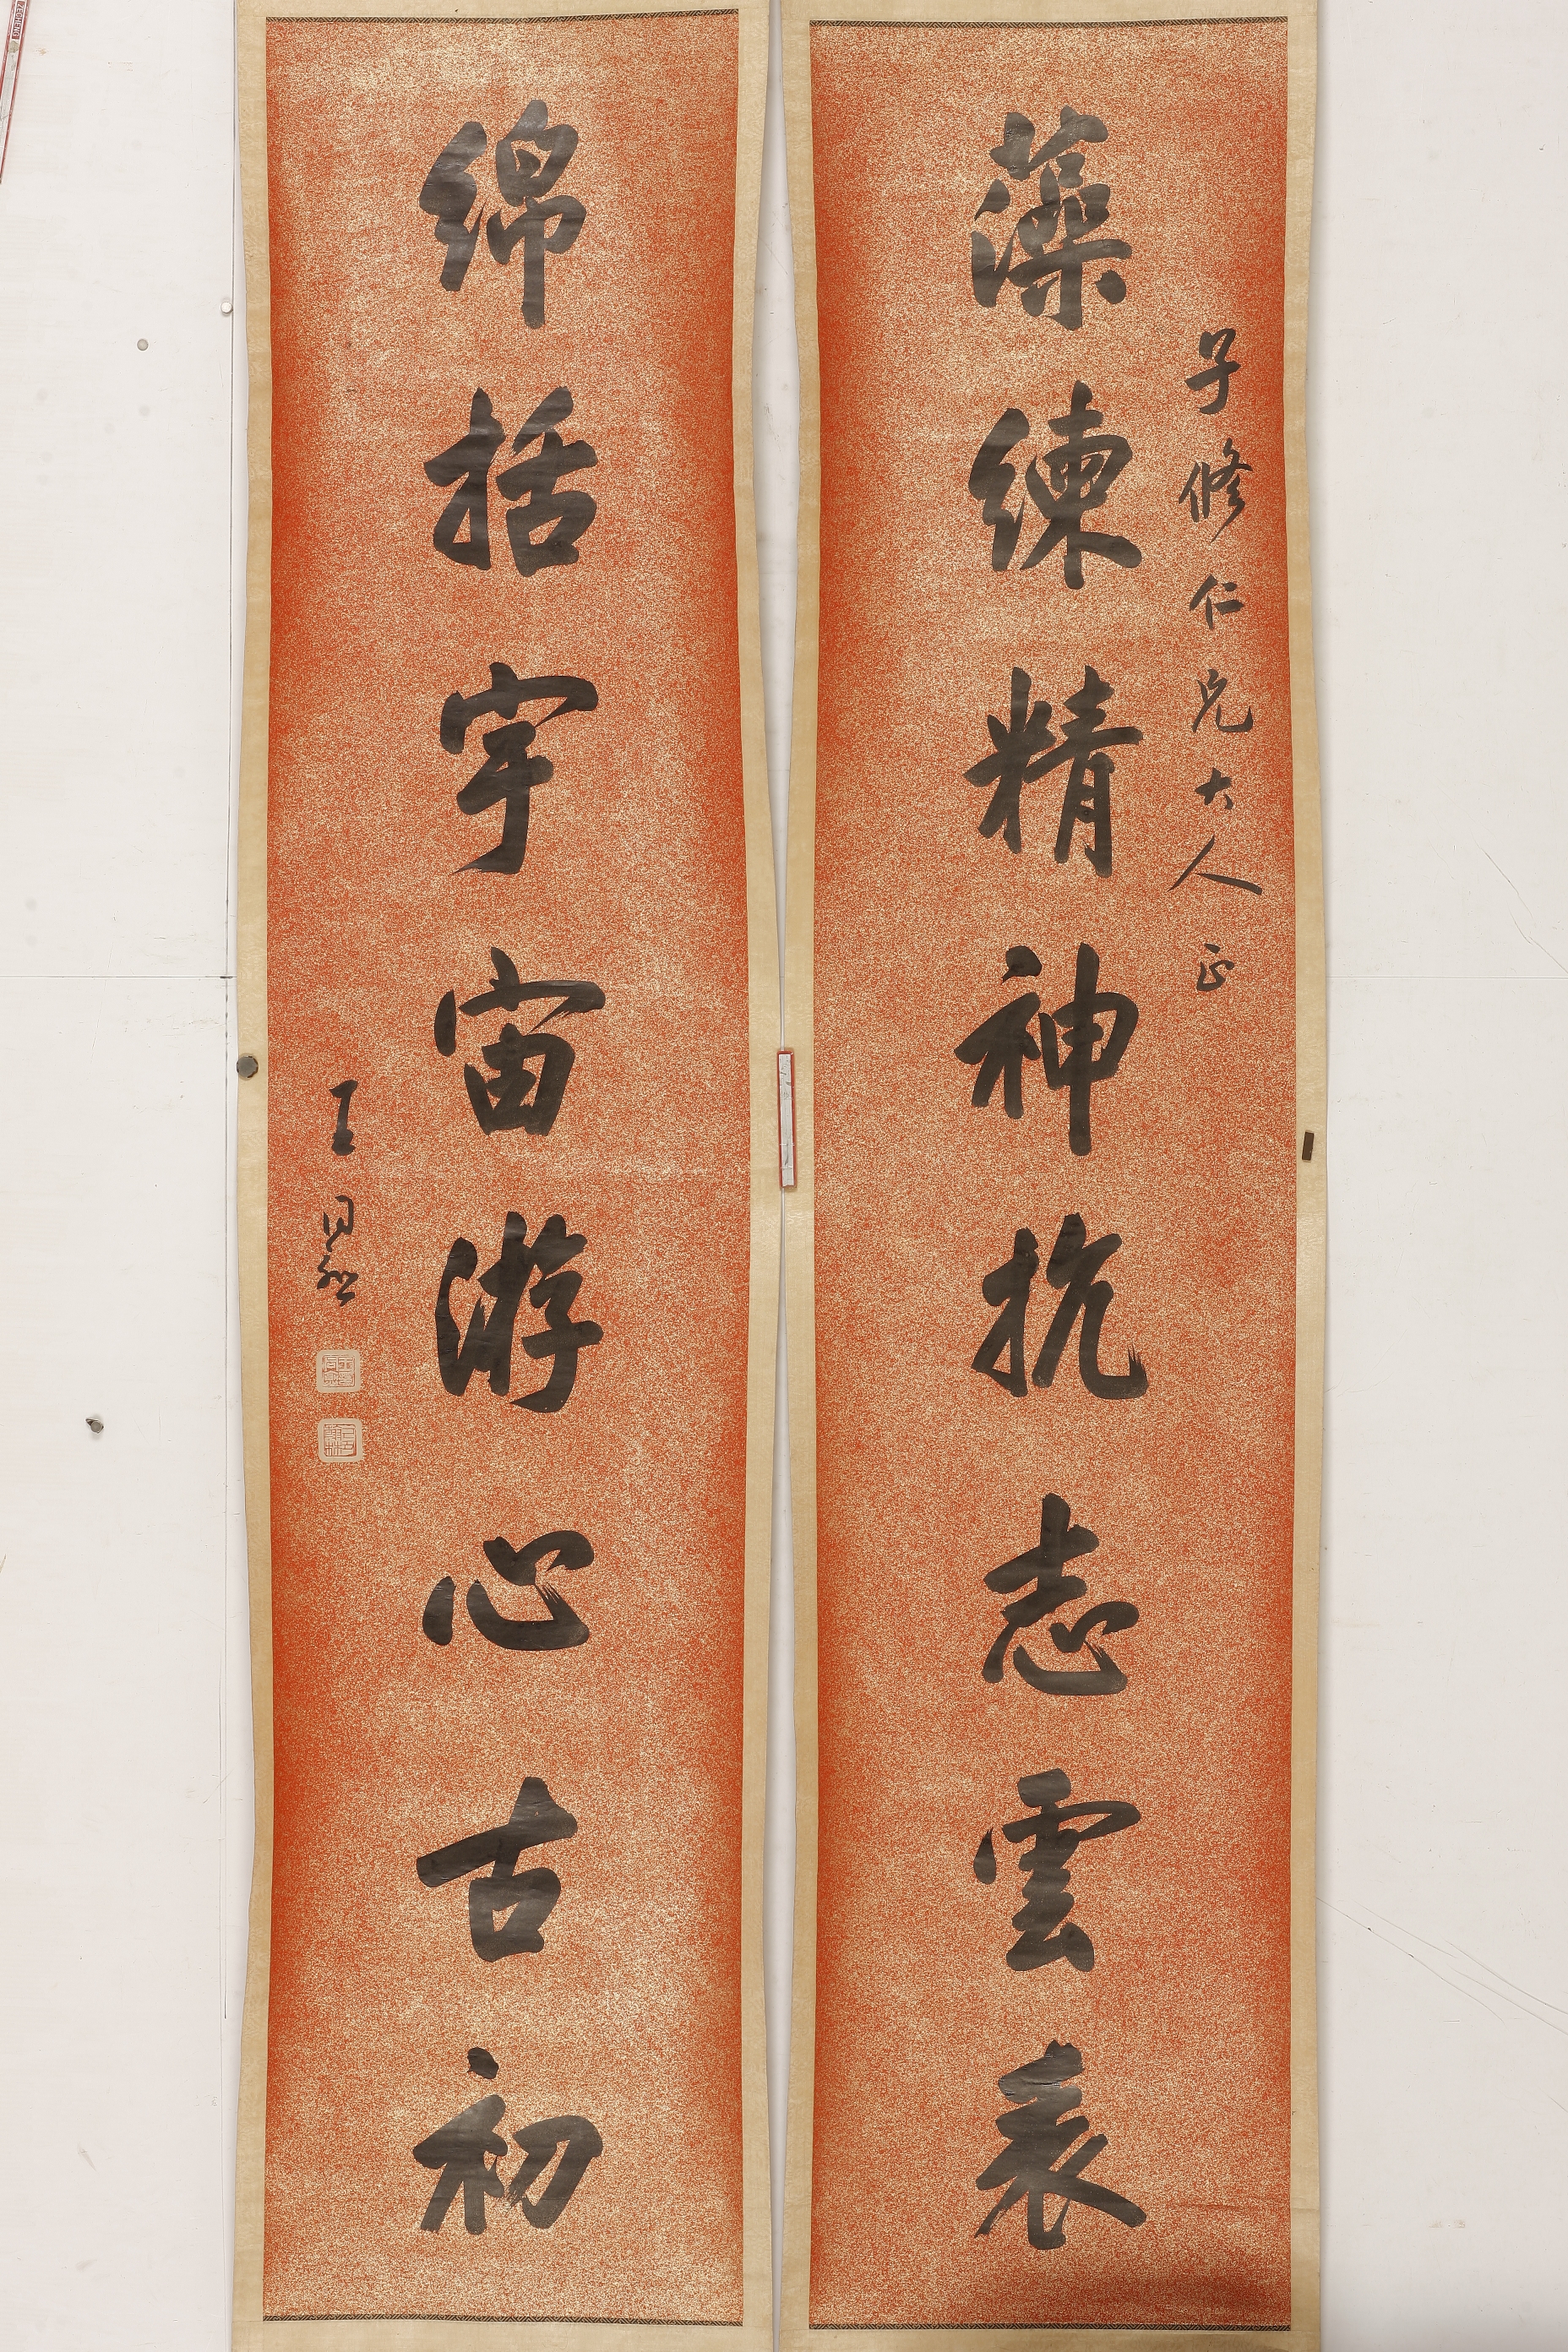 子修仁兄大人正
藻練精神抗志雲表
綿括宇宙游心古初
王同愈